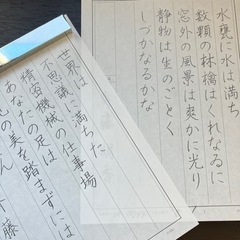 水甕に水は満ち
数顆の林檎はくれなゐに
窓外の風景は爽かに光り
静物は生のごとく
しづかなるかな
世界は
不思議に満ちた
精密機械の仕事場
あなたの足は
を踏まずには
の美を